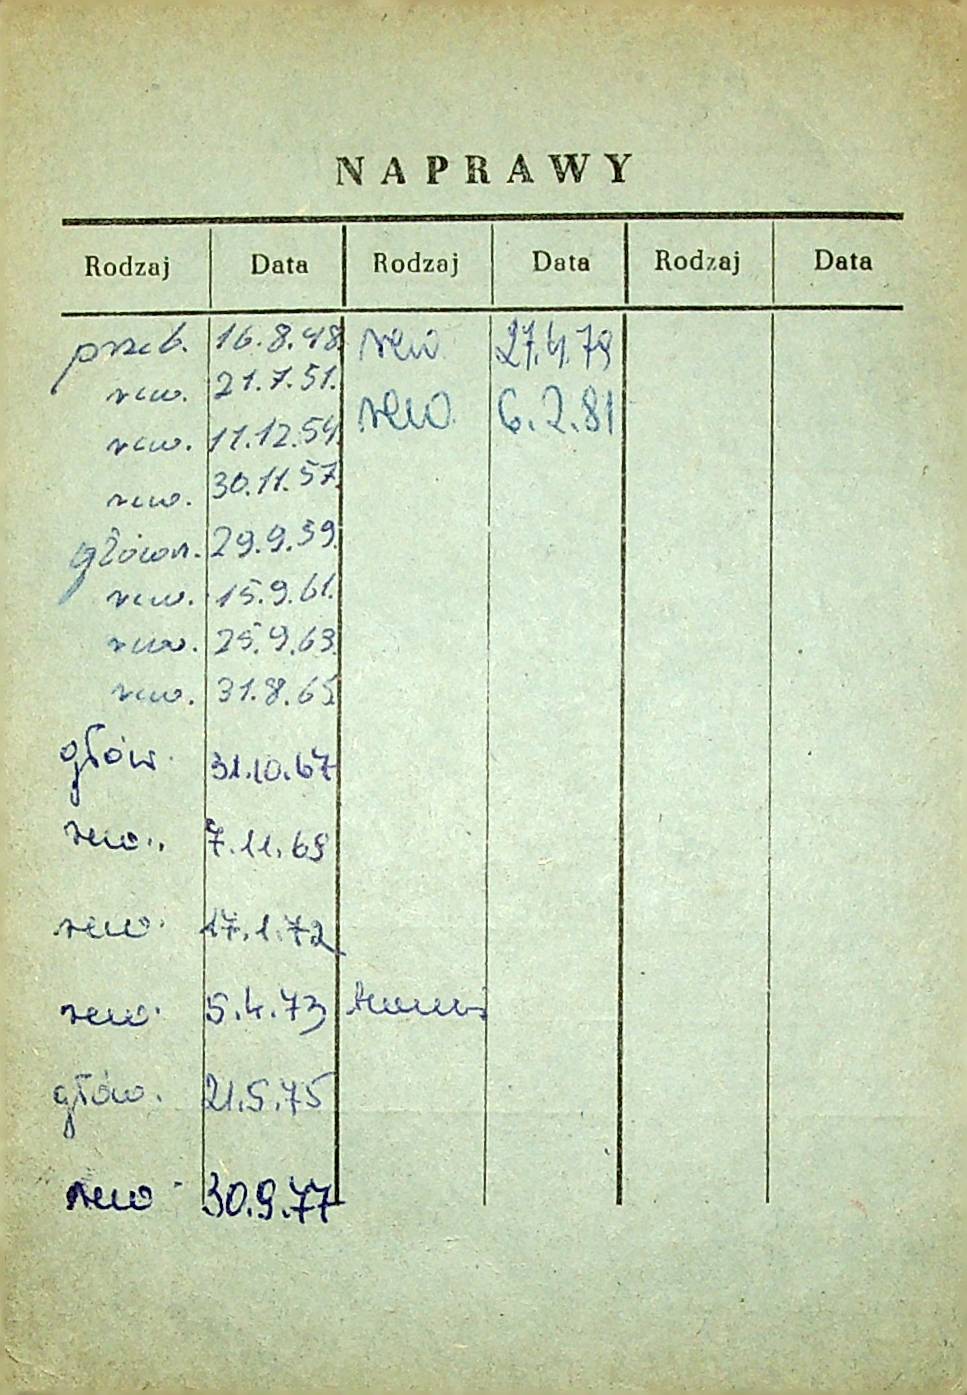 NAPRAWY
Rodzaj Data Rodzaj Data Rodzaj Data
przeb. 16.8.48 rew. 27.4.79
rew. 21.7.51. rew. 6.2.81
rew. 11.12.54.
rew. 30.11.57.
główn. 29.9.59.
rew. 15.9.61.
rew. 25.9.63.
rew. 31.8.65
głów. 31.10.67
rew. 7.11.69
rew. 17.1.72
rew. 5.4.73
głów. 21.5.75
rew. 30.9.77